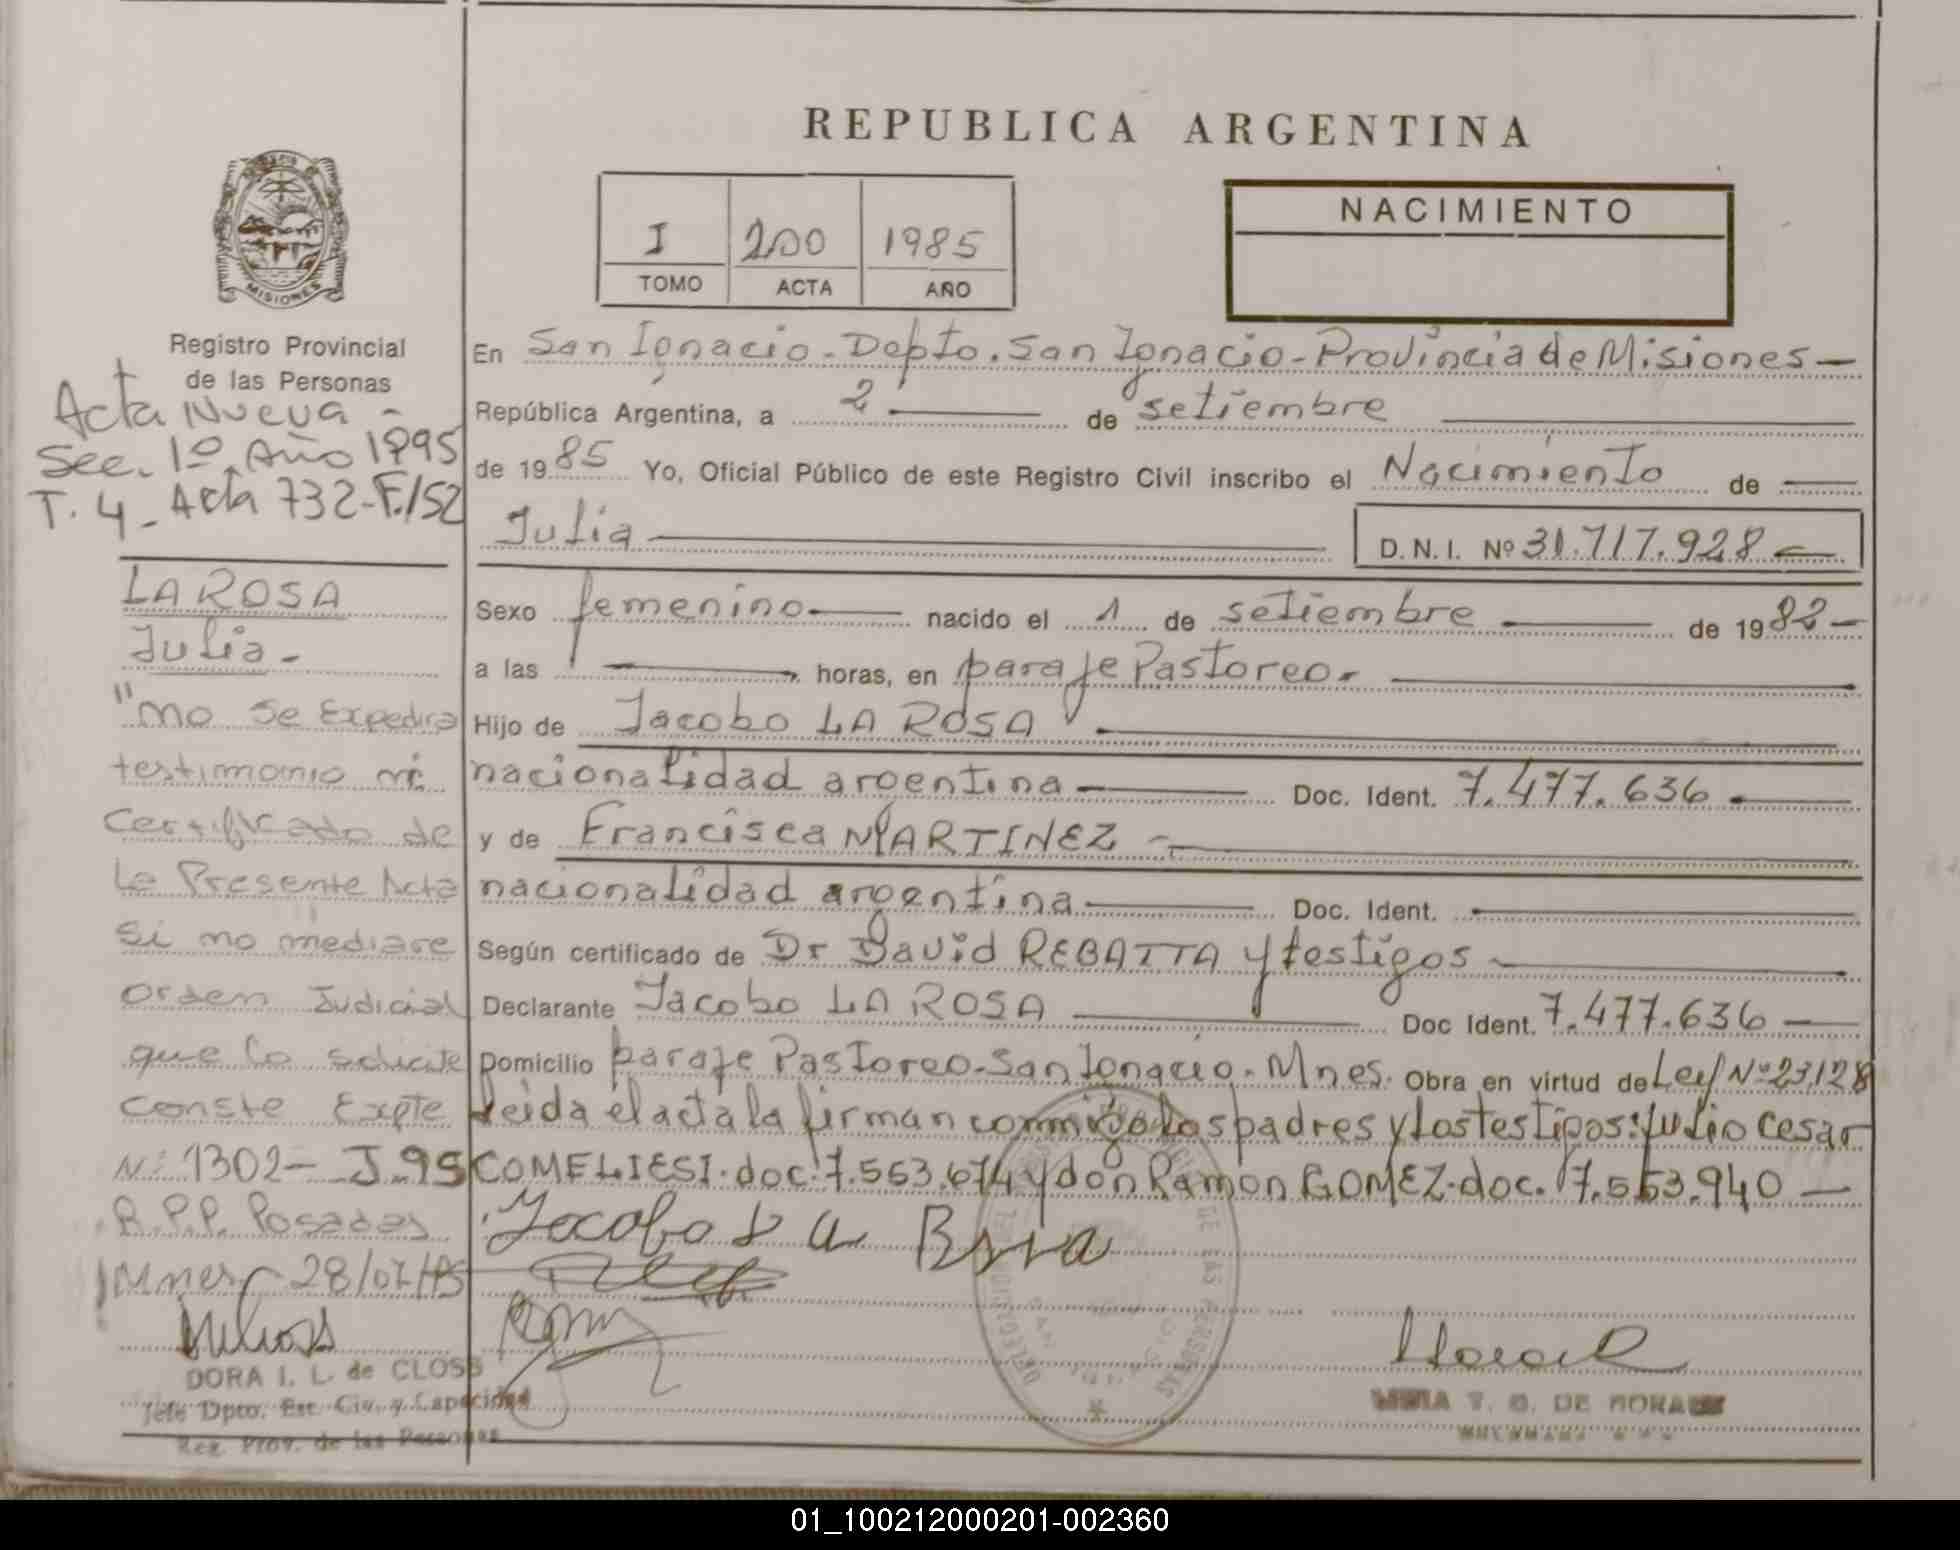 REPUBLICA ARGENTINA
I 200 1985
TOMO ACTA AÑO
NACIMIENTO
MISIONES
Registro Provincial
de las Personas
Acta Nueva -
Sec. 1º Año 1995
T. 4 - Acta 732-F./52
LA ROSA
Julia -
"no se Expedira
testimonio ni
Certificado de
la Presente Acta
si no mediare
orden Judicial
que lo solicite
Conste Expte
Nº 1302- J.95
R.P.P. Posadas
Mnes, 28/07/95
DORA I. L. de CLOSS
Jefe Dpto. Est. Civ. y Capacidad
Reg. Prov. de las Personas
En San Ignacio - Depto. San Ignacio - Provincia de Misiones -
República Argentina, a 2 de setiembre
de 1985 Yo, Oficial Público de este Registro Civil inscribo el Nacimiento de
Julia D.N.I. Nº 31.717.928 -
Sexo femenino nacido el 1 de setiembre de 1982 -
a las horas, en paraje Pastoreo -
Hijo de Jacobo LA ROSA
nacionalidad argentina Doc. Ident. 7.477.636 -
y de Francisca MARTINEZ -
nacionalidad argentina Doc. Ident.
Según certificado de Dr David REBATTA y testigos
Declarante Jacobo LA ROSA Doc Ident. 7.477.636 -
Domicilio paraje Pastoreo - San Ignacio - Mnes. Obra en virtud de Ley Nº 23128
leida el acta la firman conmigo los padres y los testigos: Julio Cesar
COMELIESI. doc. 7.553.674 y don Ramon GOMEZ. doc. 7.553.940 -
Jacobo La Rosa
T. G. DE MORA
01_100212000201-002360